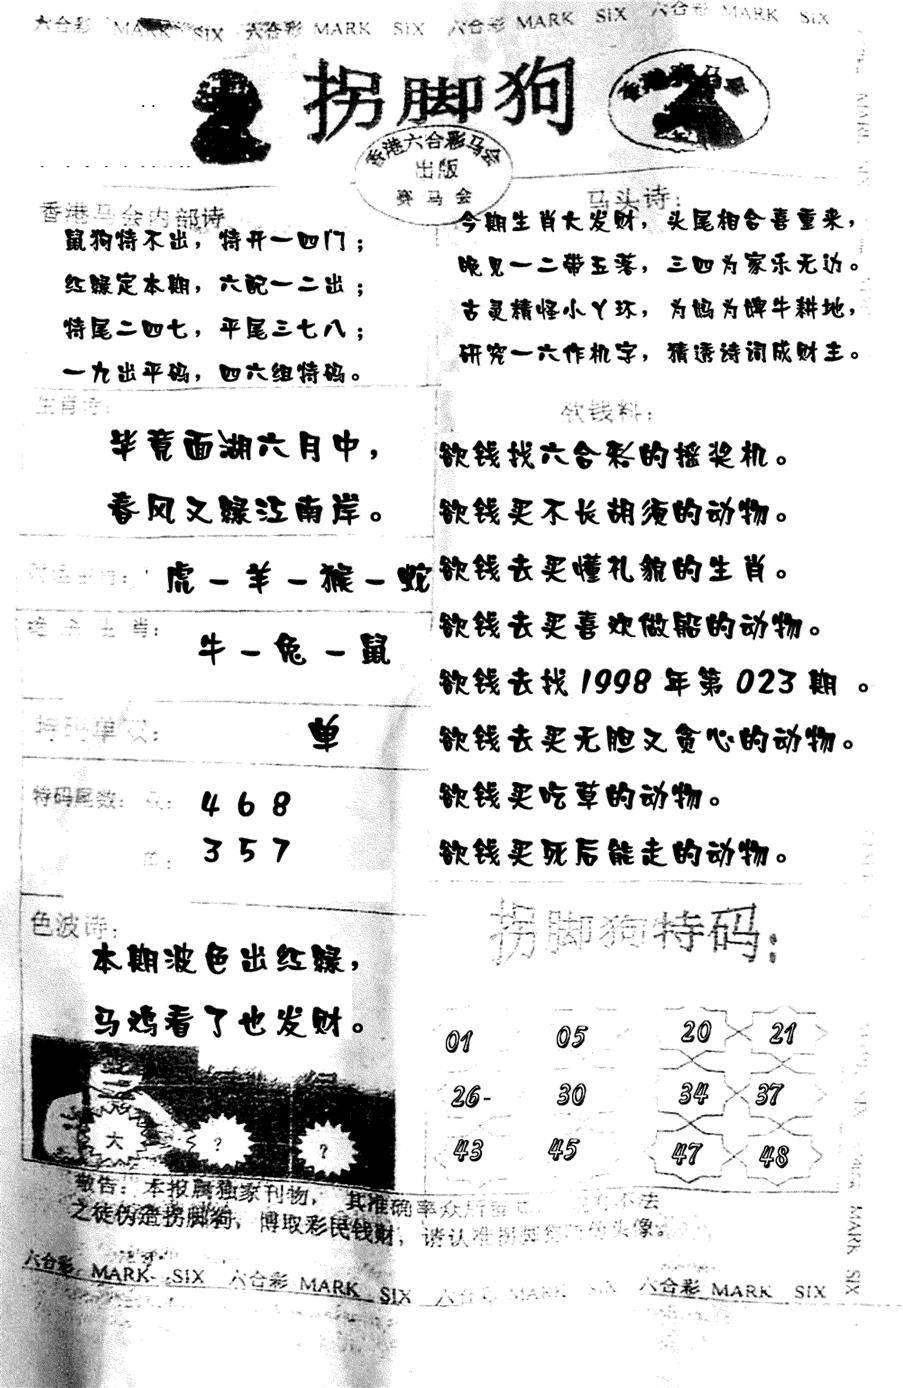 六合彩 MARK SIX 六合彩 MARK SIX 六合彩 MARK SIX 六合彩 MARK SIX
拐脚狗
香港赛马会
香港六合彩马会
出版
赛马会
香港马会内部诗
鼠狗特不出，特开一四门；
红绿定本期，六配一二出；
特尾二四七，平尾三七八；
一九出平码，四六组特码。
马头诗：
今期生肖大发财，头尾相合喜重来，
晚见一二带五落，三四为家乐无边。
古灵精怪小丫环，为妈为婢牛耕地，
研究一六作机字，猜透诗词成财主。
生肖诗：
毕竟面湖六月中，
春风又绿江南岸。
虎－羊－猴－蛇
生肖：
牛－兔－鼠
特码单双：
单
特码尾数：双：
4 6 8
单：
3 5 7
色波诗：
本期波色出红绿，
马鸡看了也发财。
大
?
?
欲钱料：
欲钱找六合彩的摇奖机。
欲钱买不长胡须的动物。
欲钱去买懂礼貌的生肖。
欲钱去买喜欢做船的动物。
欲钱去找1998年第023期 。
欲钱去买无胆又贪心的动物。
欲钱买吃草的动物。
欲钱买死后能走的动物。
拐脚狗特码：
01 05 20 21
26- 30 34 37
43 45 47 48
敬告：本报属独家刊物，其准确率众所 不法
之徒伪造拐脚狗，博取彩民钱财，请认准拐脚 头像。
六合彩 MARK SIX 六合彩 MARK SIX 六合彩 MARK SIX 六合彩 MARK SIX
MARK SIX